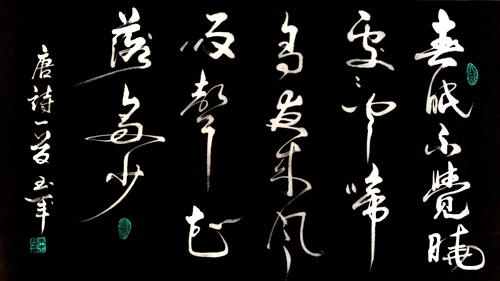 春眠不覺曉
處々聞啼
鳥夜來風
雨聲花
落多少
唐詩一首玉軍